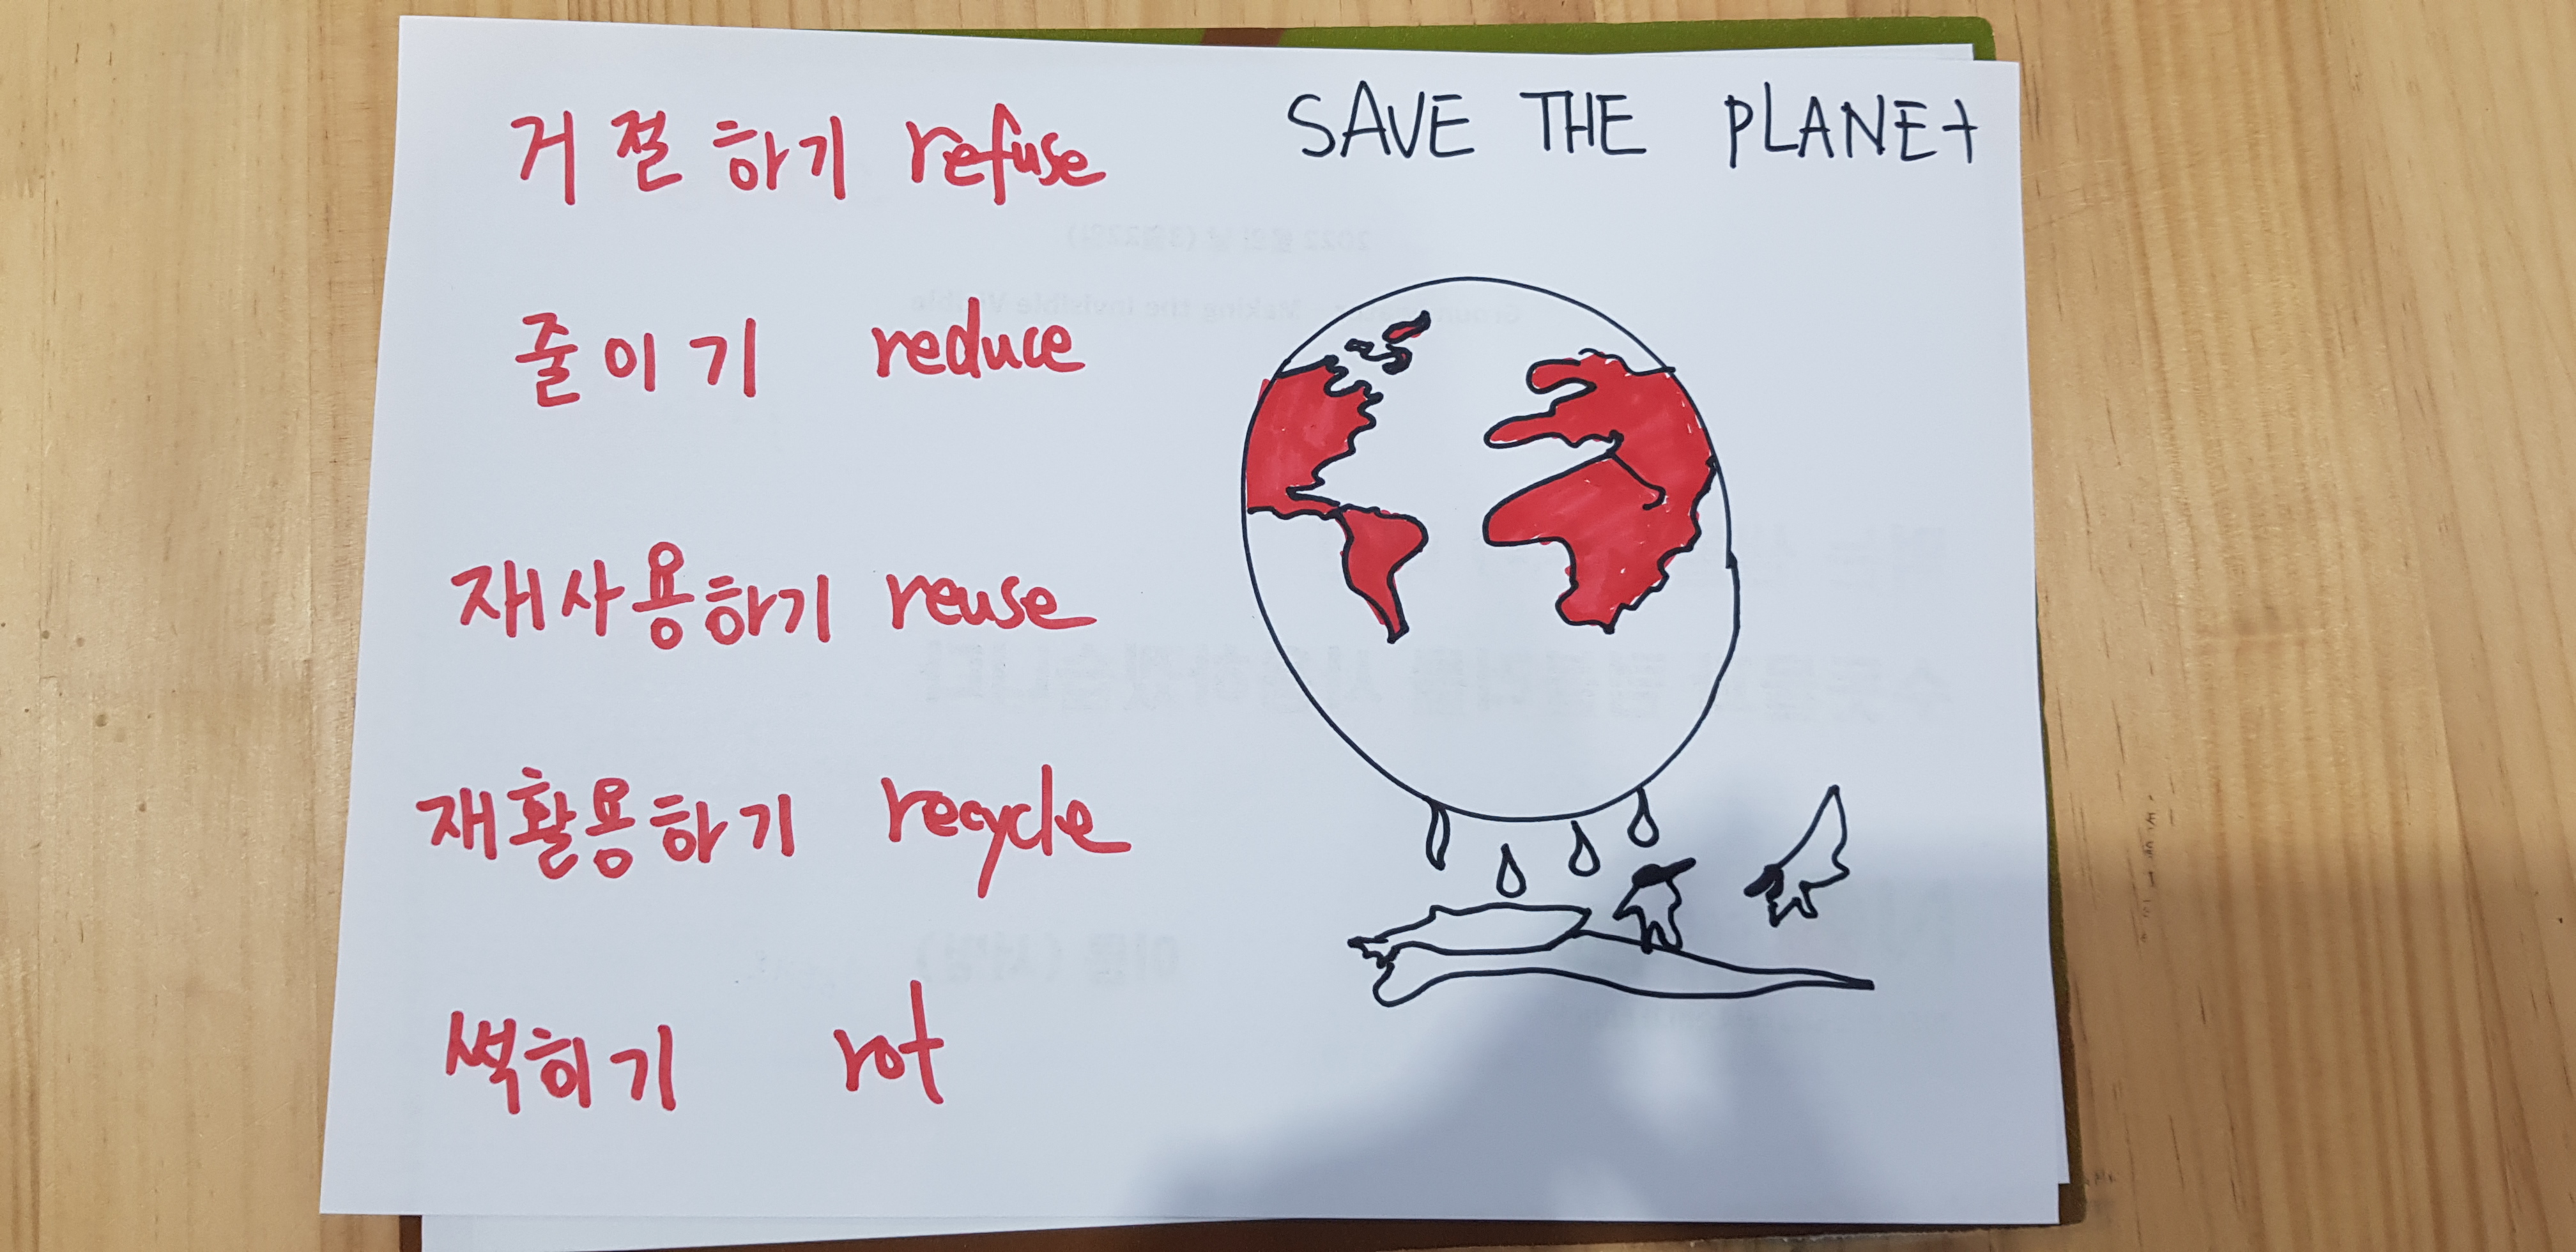 거절하기 refuse
줄이기 reduce
재사용하기 reuse
재활용하기 recycle
썩히기 rot
SAVE THE PLANEt